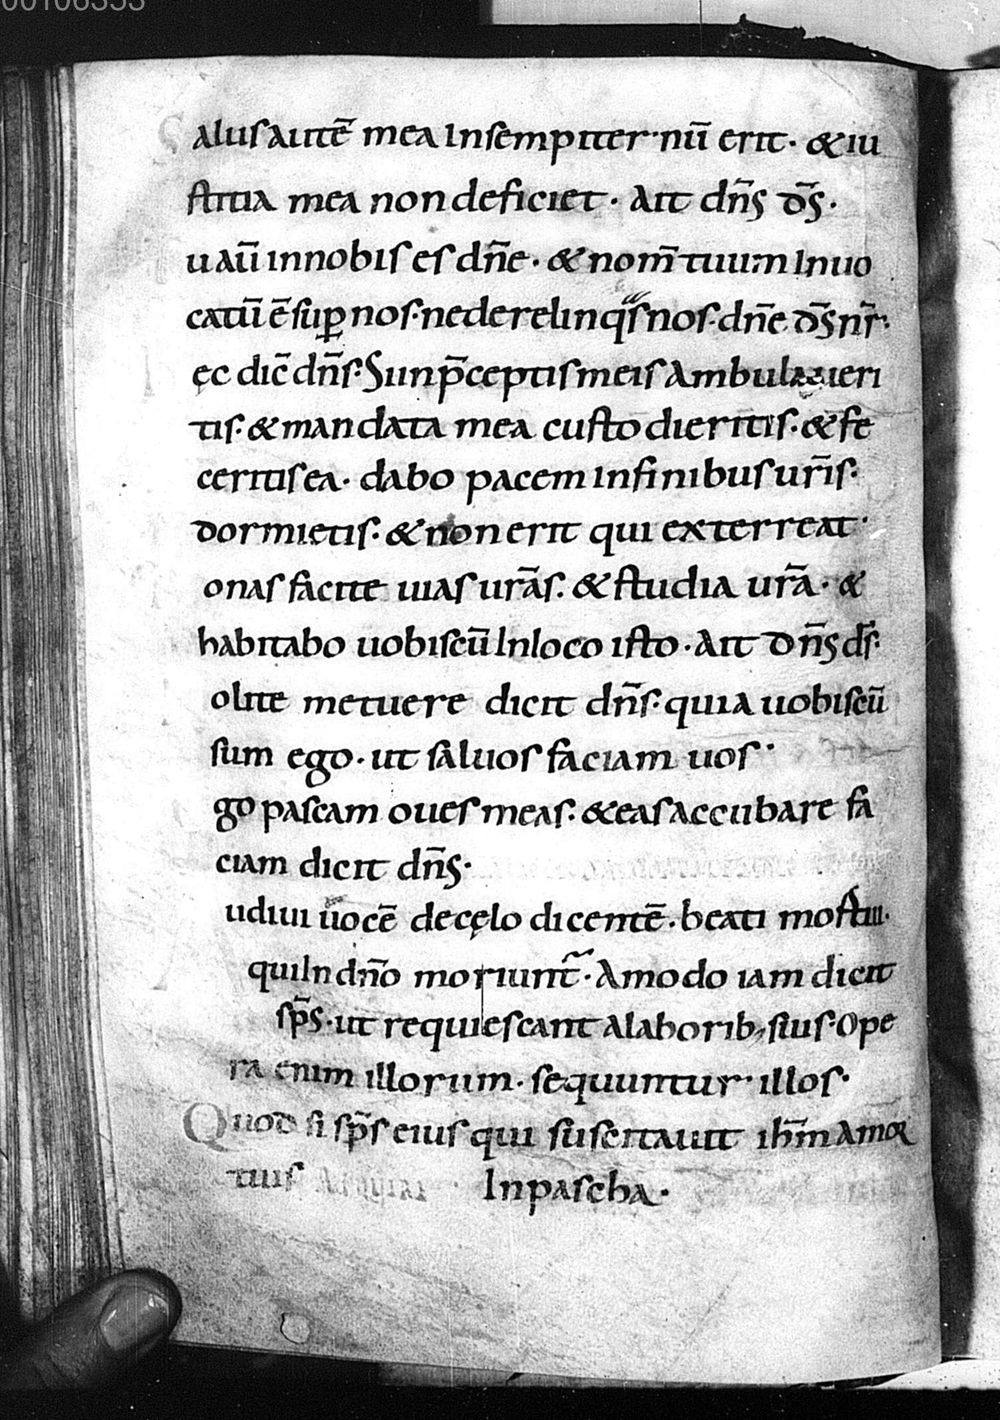 00106353
Salus autē mea Insempiter nū erit· & iu
stitia mea non deficiet· Ait dn̄s ds̄·
u aū innobis es dn̄e· & nom̄ tuum Inuo
catū ē sup̱ nos· ne derelinqs nos· dn̄e ds̄ nr̄·
ęc dic̄ dn̄s· Si in p̄ceptis meis Ambulaueri
tis· & mandata mea custodieritis· & fe
ceritis ea· dabo pacem in finibus ur̄is·
dormietis· & non erit qui exterreat·
onas facite uias ur̄as· & studia ur̄a· &
habitabo uobiscū Inloco isto· Ait dn̄s ds̄·
olite metuere dicit dn̄s· quia uobiscū
sum ego· ut saluos faciam uos·
go pascam oues meas· & eas accubare fa
ciam dicit dn̄s·
udiui uocē decęlo dicentē· beati mortui·
qui In dn̄o moriunt̄· Amodo iam dicit
sp̄s· ut requiescant a laborib; suis· Ope
ra enim illorum· sequuntur illos·
Quod si sp̄s eius qui suscitauit ih̄m Amor
tuis In pascha·